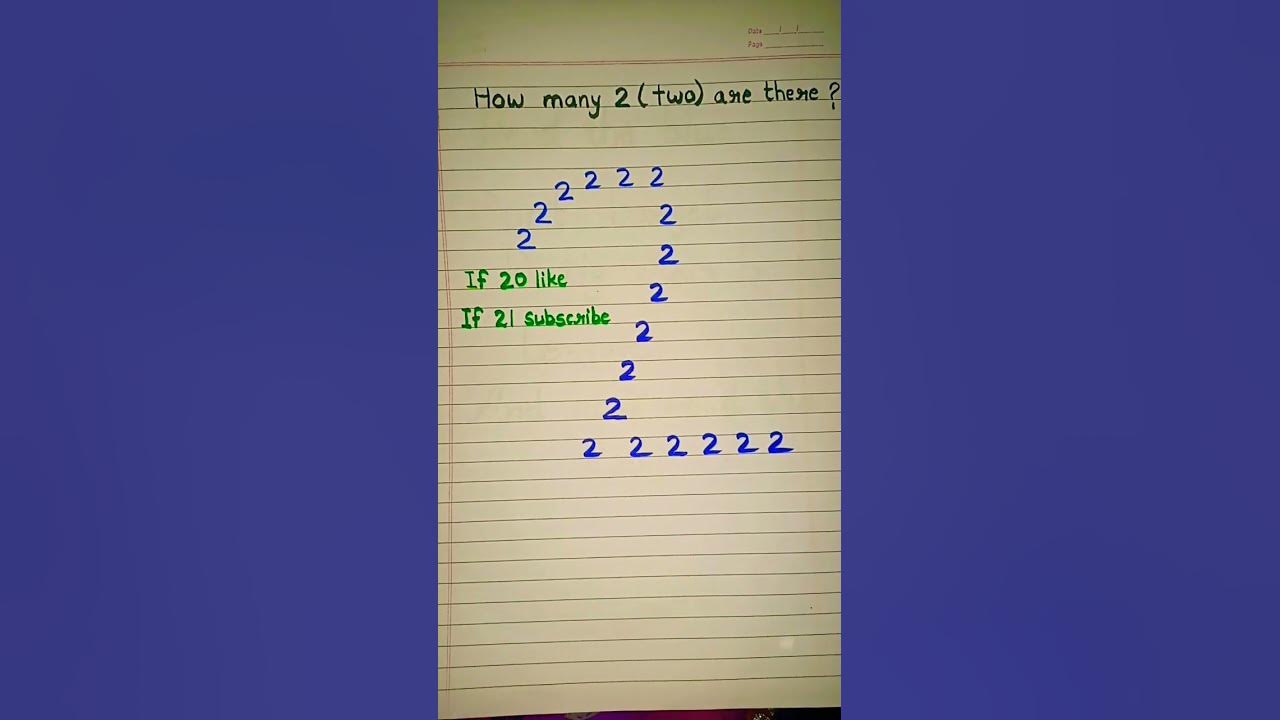 Date ___/___/___
Page ___________
How many 2 (two) are there ?
2 2 2 2
2 2
2 2
If 20 like
2
If 21 subscribe
2
2
2
2 2 2 2 2 2